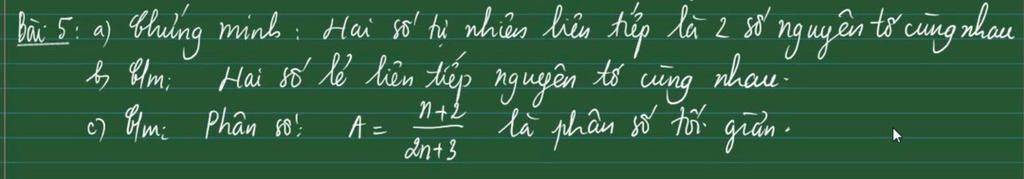 Bài 5: a) Chứng minh: Hai số tự nhiên liên tiếp là 2 số nguyên tố cùng nhau
b) C/m: Hai số lẻ liên tiếp nguyên tố cùng nhau.
c) C/m: Phân số: A = n+2/2n+3 là phân số tối giản.